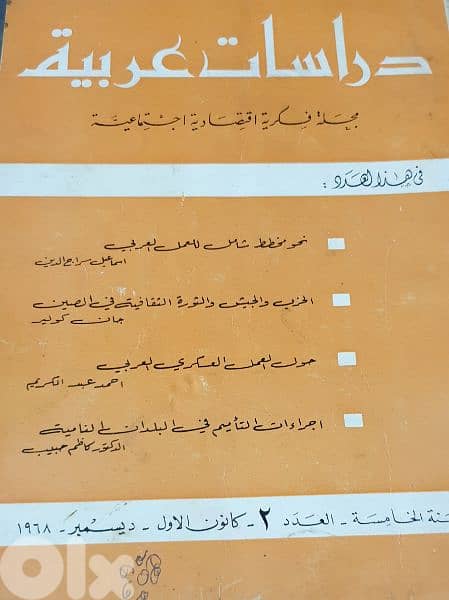 دراسات عربية
مجلة فكرية اقتصادية اجتماعية
في هذا العدد :
نحو مخطط شامل للعمل العربي
اسماعيل سراج الدين
الحزب والجيش والثورة الثقافية في الصين
جان كولير
حول العمل العسكري العربي
احمد عبد الكريم
اجراءات التأميم في البلدان النامية
الدكتور كاظم حبيب
سنة الخامسة - العدد ٢ - كانون الاول - ديسمبر - ١٩٦٨
olx